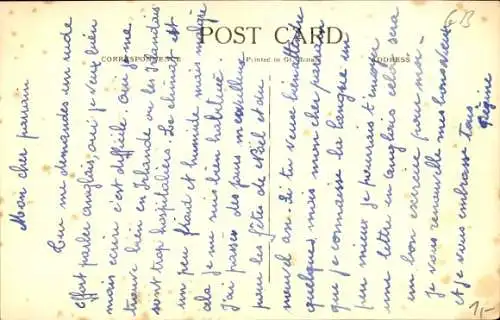 POST CARD
CORRESPONDENCE
Printed in Gt. Britain
ADDRESS
GB
Mon cher parrain
Tu me demandes un rude
effort parler anglais, oui je veux bien
mais ecrire c'est difficile. Oui je me
trouve bien en Irlande où les Irlandais
sont trop hospitaliers. Le climat est
un peu froid et humide mais malgré
cela je me suis bien habituée
j'ai passé des jours merveilleux
pour les fêtes de Noël et du
nouvel an. Si tu veux attendre
quelques mois mon cher parrain
que je connaisse la langue un
peu mieux je pourrais t'envoyer
une lettre en anglais cela sera
un bon exercice pour moi
Je vous renouvelle mes bons vœux
et je vous embrasse tous
Régine
1,-